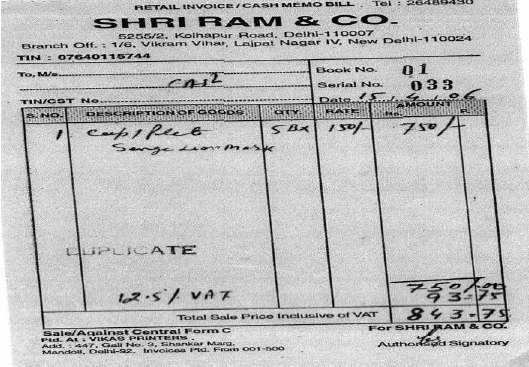 RETAIL INVOICE / CASH MEMO BILL . Tel : 26489430
SHRI RAM & CO.
5255/2, Kolhapur Road, Delhi-110007
Branch Off. : 1/6, Vikram Vihar, Lajpat Nagar IV, New Delhi-110024
TIN : 07640115744
To, M/s. Book No. 01
Serial No. 033
TIN/CST No. Date 15/4/06
S. NO. DESCRIPTION OF GOODS QTY. RATE AMOUNT
Rs. P.
1 5 Bx 150/- 750/-
DUPLICATE
750/-00
12.5% VAT 93-75
Total Sale Price Inclusive of VAT 843-75
Sale/Against Central Form C For SHRI RAM & CO.
Ptd. At : VIKAS PRINTERS .
Add. : 447, Gali No. 3, Shankar Marg, Authorised Signatory
Mandoli, Delhi-92. Invoices Ptd. From 001-500